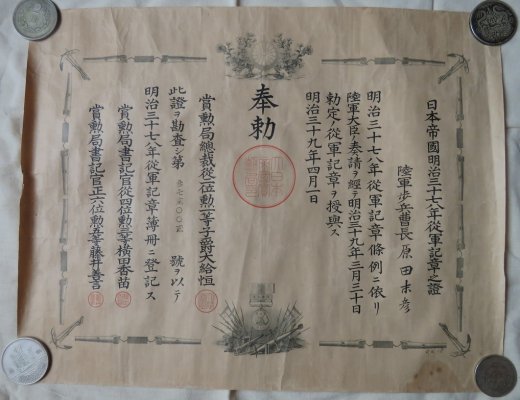 日本帝國明治三十七八年從軍記章之證
陸軍歩兵曹長 原田末彦
明治三十七八年從軍記章條例ニ依リ
陸軍大臣ノ奏請ヲ經テ明治三十九年三月三十日
勅定ノ從軍記章ヲ授與ス
明治三十九年四月一日
奉勅
賞勲局總裁從二位勲一等子爵大給恒
此證ヲ勘査シ第 號ヲ以テ
明治三十七八年從軍記章簿冊ニ登記ス
賞勲局書記官從四位勲三等横田香苗
賞勲局書記官正六位勲五等藤井善言